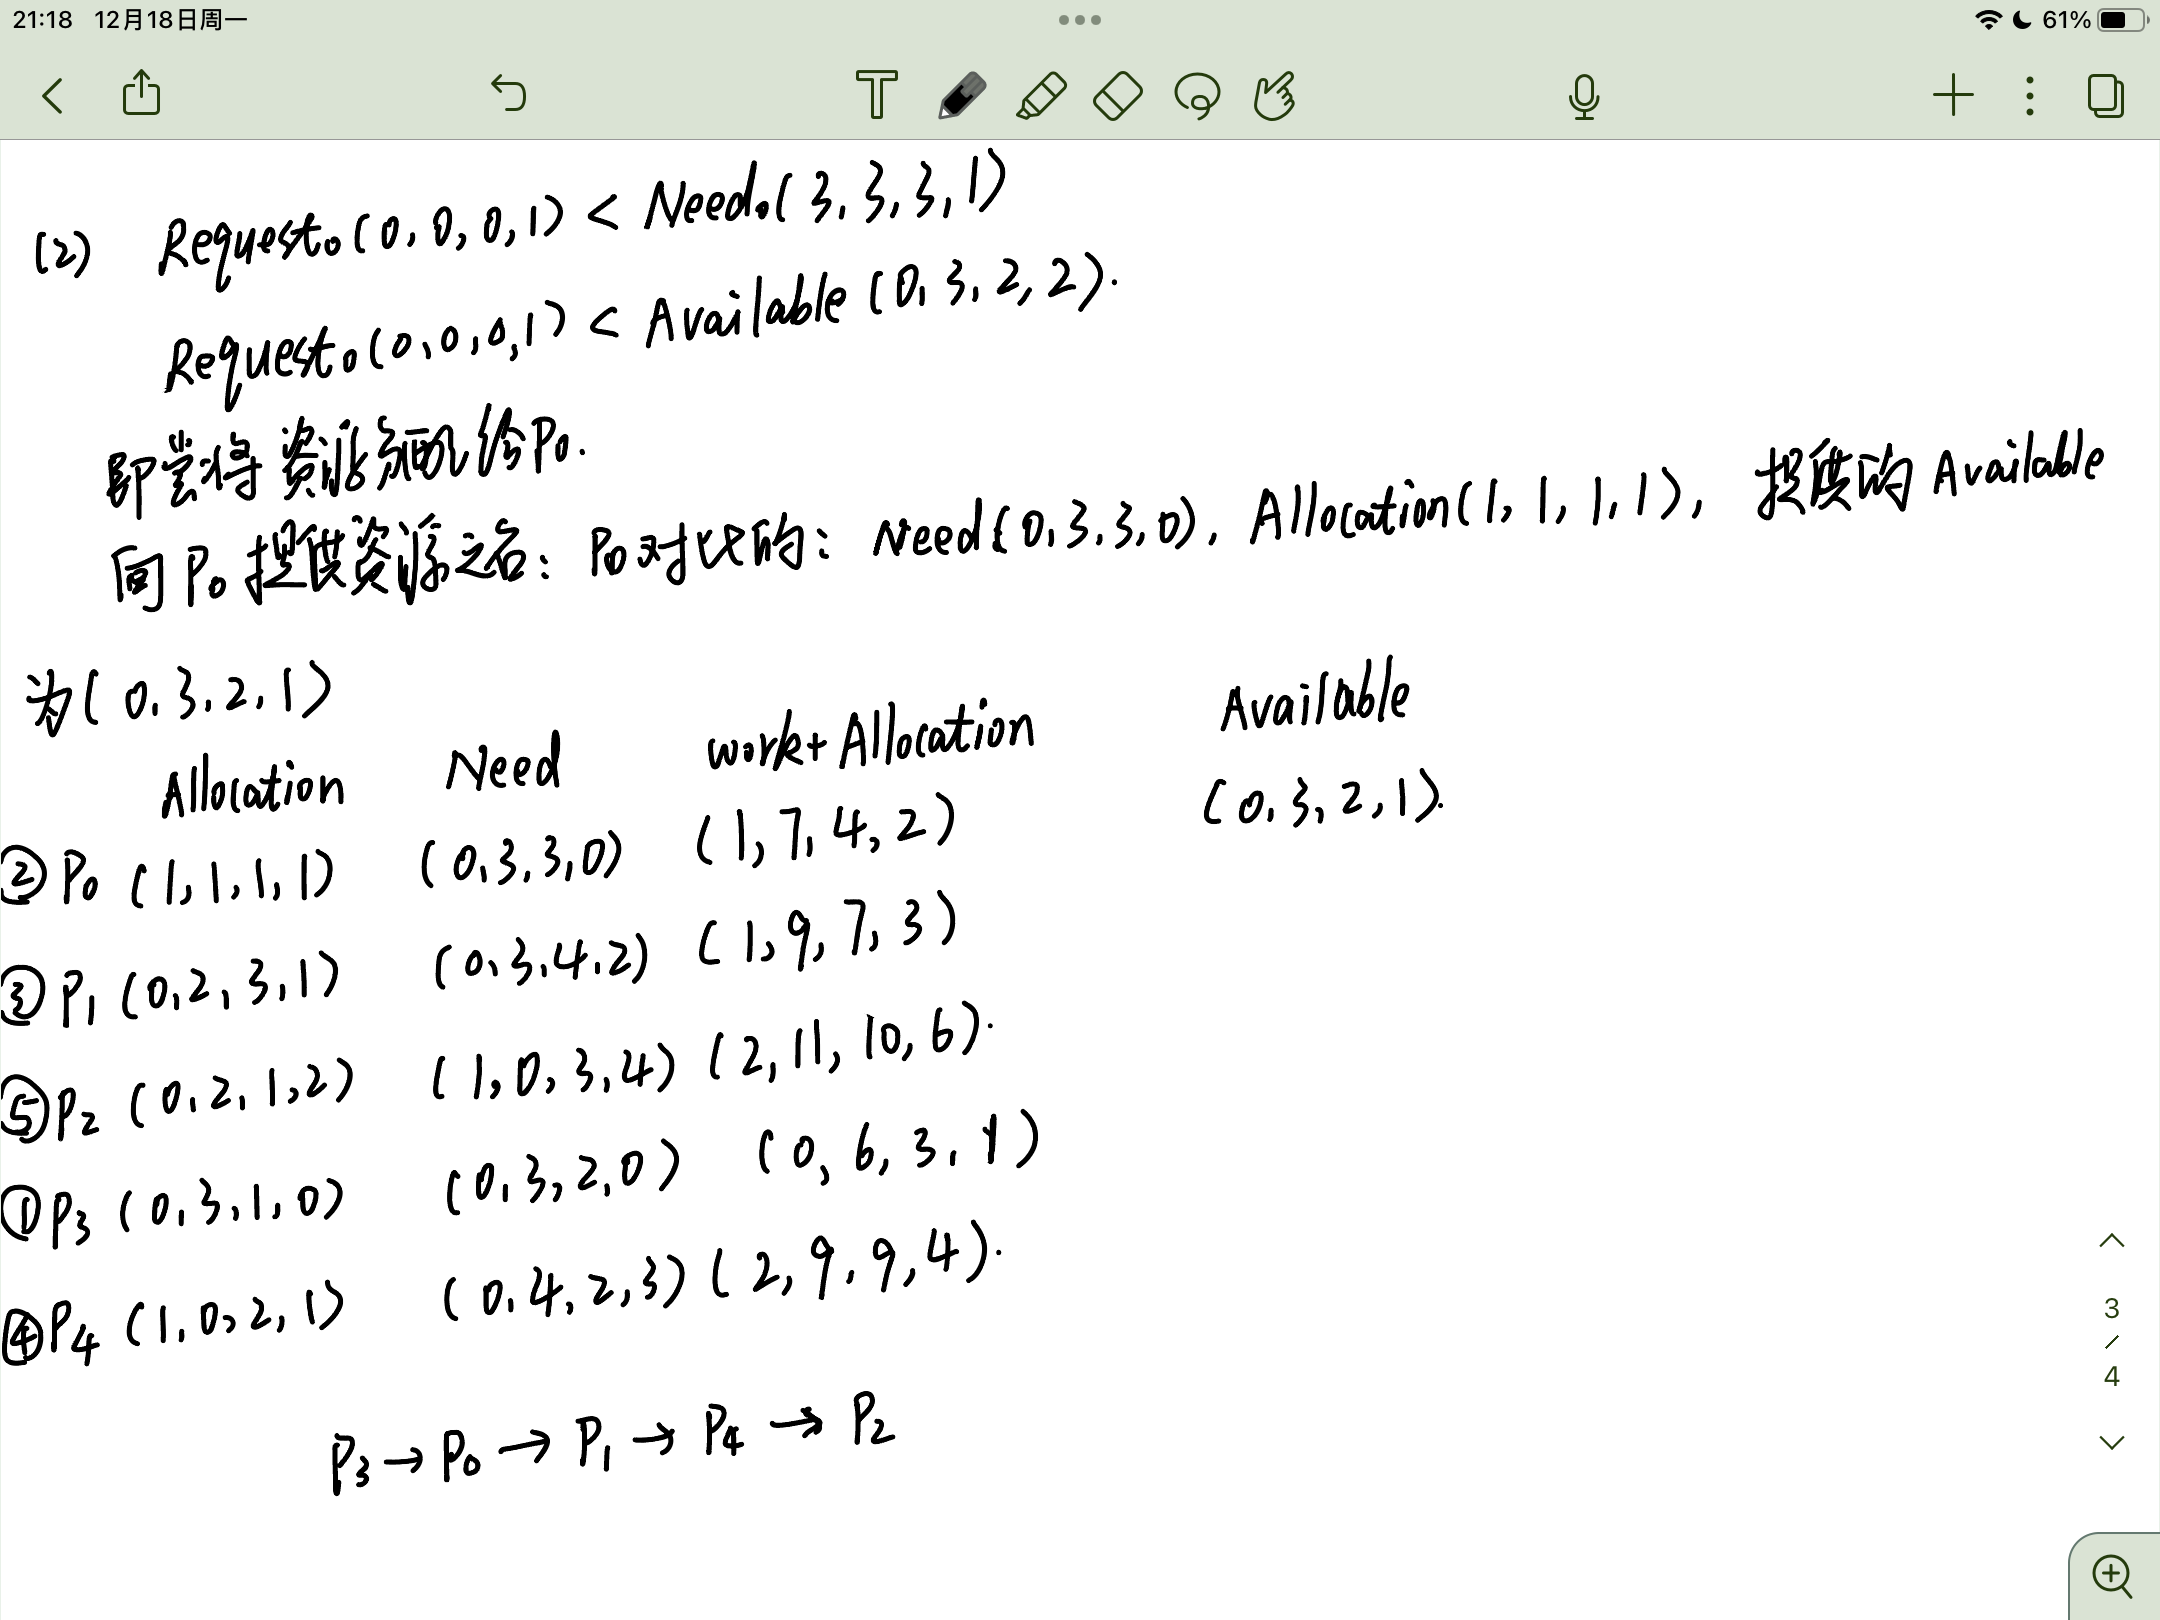 21:18 12月18日周一
61%
(2) Request₀(0,0,0,1) < Need₀(3,3,3,1)
Request₀(0,0,0,1) < Available (0,3,2,2).
即尝将资源分配给P₀.
向P₀提供资源之后: P₀对比的: Need(0,3,3,0), Allocation(1,1,1,1), 提供的Available
为(0,3,2,1)
Allocation Need work+Allocation Available
(0,3,2,1).
②P₀ (1,1,1,1) (0,3,3,0) (1,7,4,2)
③P₁ (0,2,3,1) (0,3,4,2) (1,9,7,3)
⑤P₂ (0,2,1,2) (1,0,3,4) (2,11,10,6).
①P₃ (0,3,1,0) (0,3,2,0) (0,6,3,1)
④P₄ (1,0,2,1) (0,4,2,3) (2,9,9,4).
P₃→P₀→P₁→P₄→P₂
3
/
4